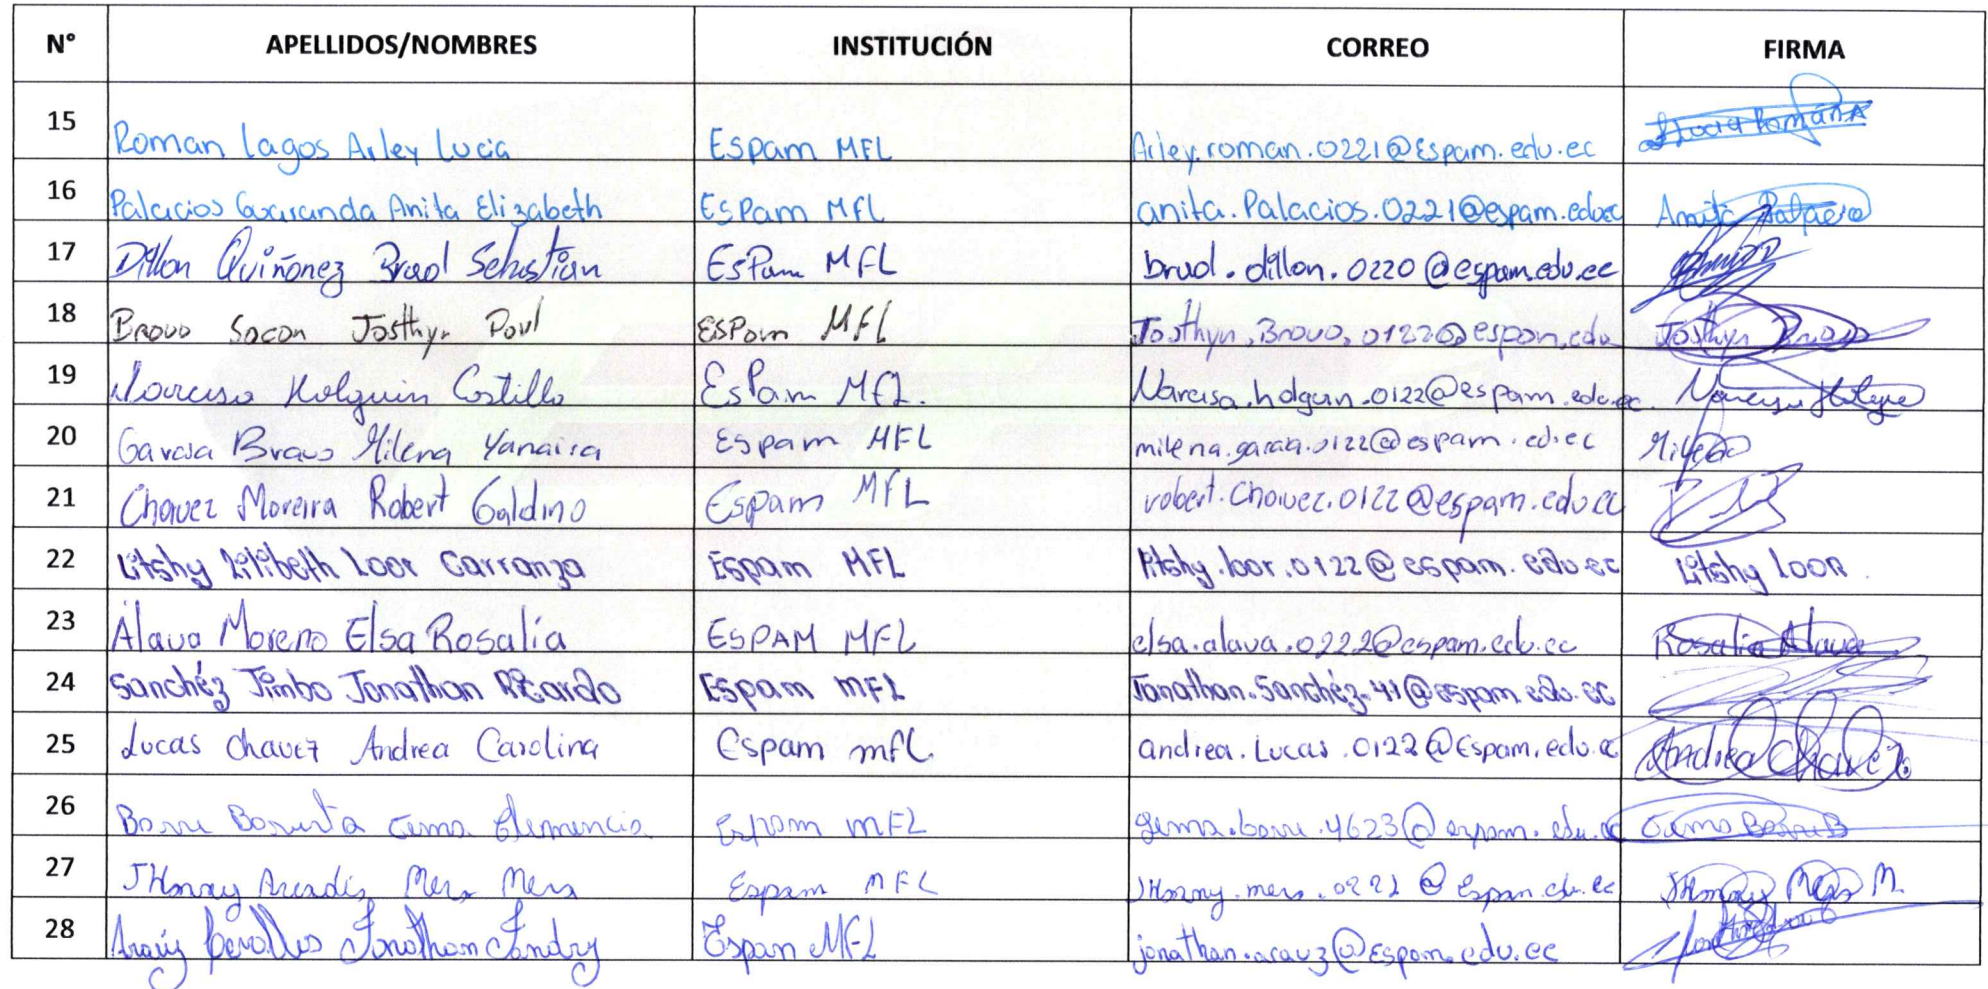 N° APELLIDOS/NOMBRES INSTITUCIÓN CORREO FIRMA
15 Roman Lagos Arley Lucia Espam MFL Arley.roman.0221@Espam.edu.ec
16 Palacios Guaranda Anita Elizabeth Espam MFL anita.Palacios.0221@espam.edu.ec Anita Palacio
17 Dillon Quiñonez Brad Sebastian EsPam MFL brad.dillon.0220@espam.edu.ec
18 Bravo Josthyn Paul ESPam MFL Josthyn.Bravo.0122@espam.edu Josthyn Bravo
19 Narcisa Holguin Castillo EsPam MFL. Narcisa.holguin.0122@espam.edu.ec Narcisa Holguin
20 Garcia Bravo Milena Yanaira Espam MFL milena.garcia.0122@espam.ed.ec
21 Chavez Moreira Robert Galdino Espam MFL robert.Chavez.0122@espam.edu.ec
22 Litshy Lilibeth Loor Carranza Espam MFL litshy.loor.0122@espam.edu.ec Litshy Loor.
23 Álava Moreno Elsa Rosalía ESPAM MFL elsa.alava.0222@espam.edu.ec Rosalia Alava
24 Sanchéz Jimbo Jonathan Ricardo Espam MFL Jonathan.Sanchéz.41@espam.edu.ec
25 Lucas Chavez Andrea Carolina Espam mfL. andrea.Lucas.0122@Espam.edu.ec Andrea Chavez
26 Gema Espam MFL gema.barre.4623@espam.edu.ec
27 JHonny Mera Mera Espam MFL JHonny.mera.0221@espam.edu.ec JHonny Mera M.
28 Arauz Cevallos Jonathan Landry Espam MFL jonathan.arauz@Espam.edu.ec